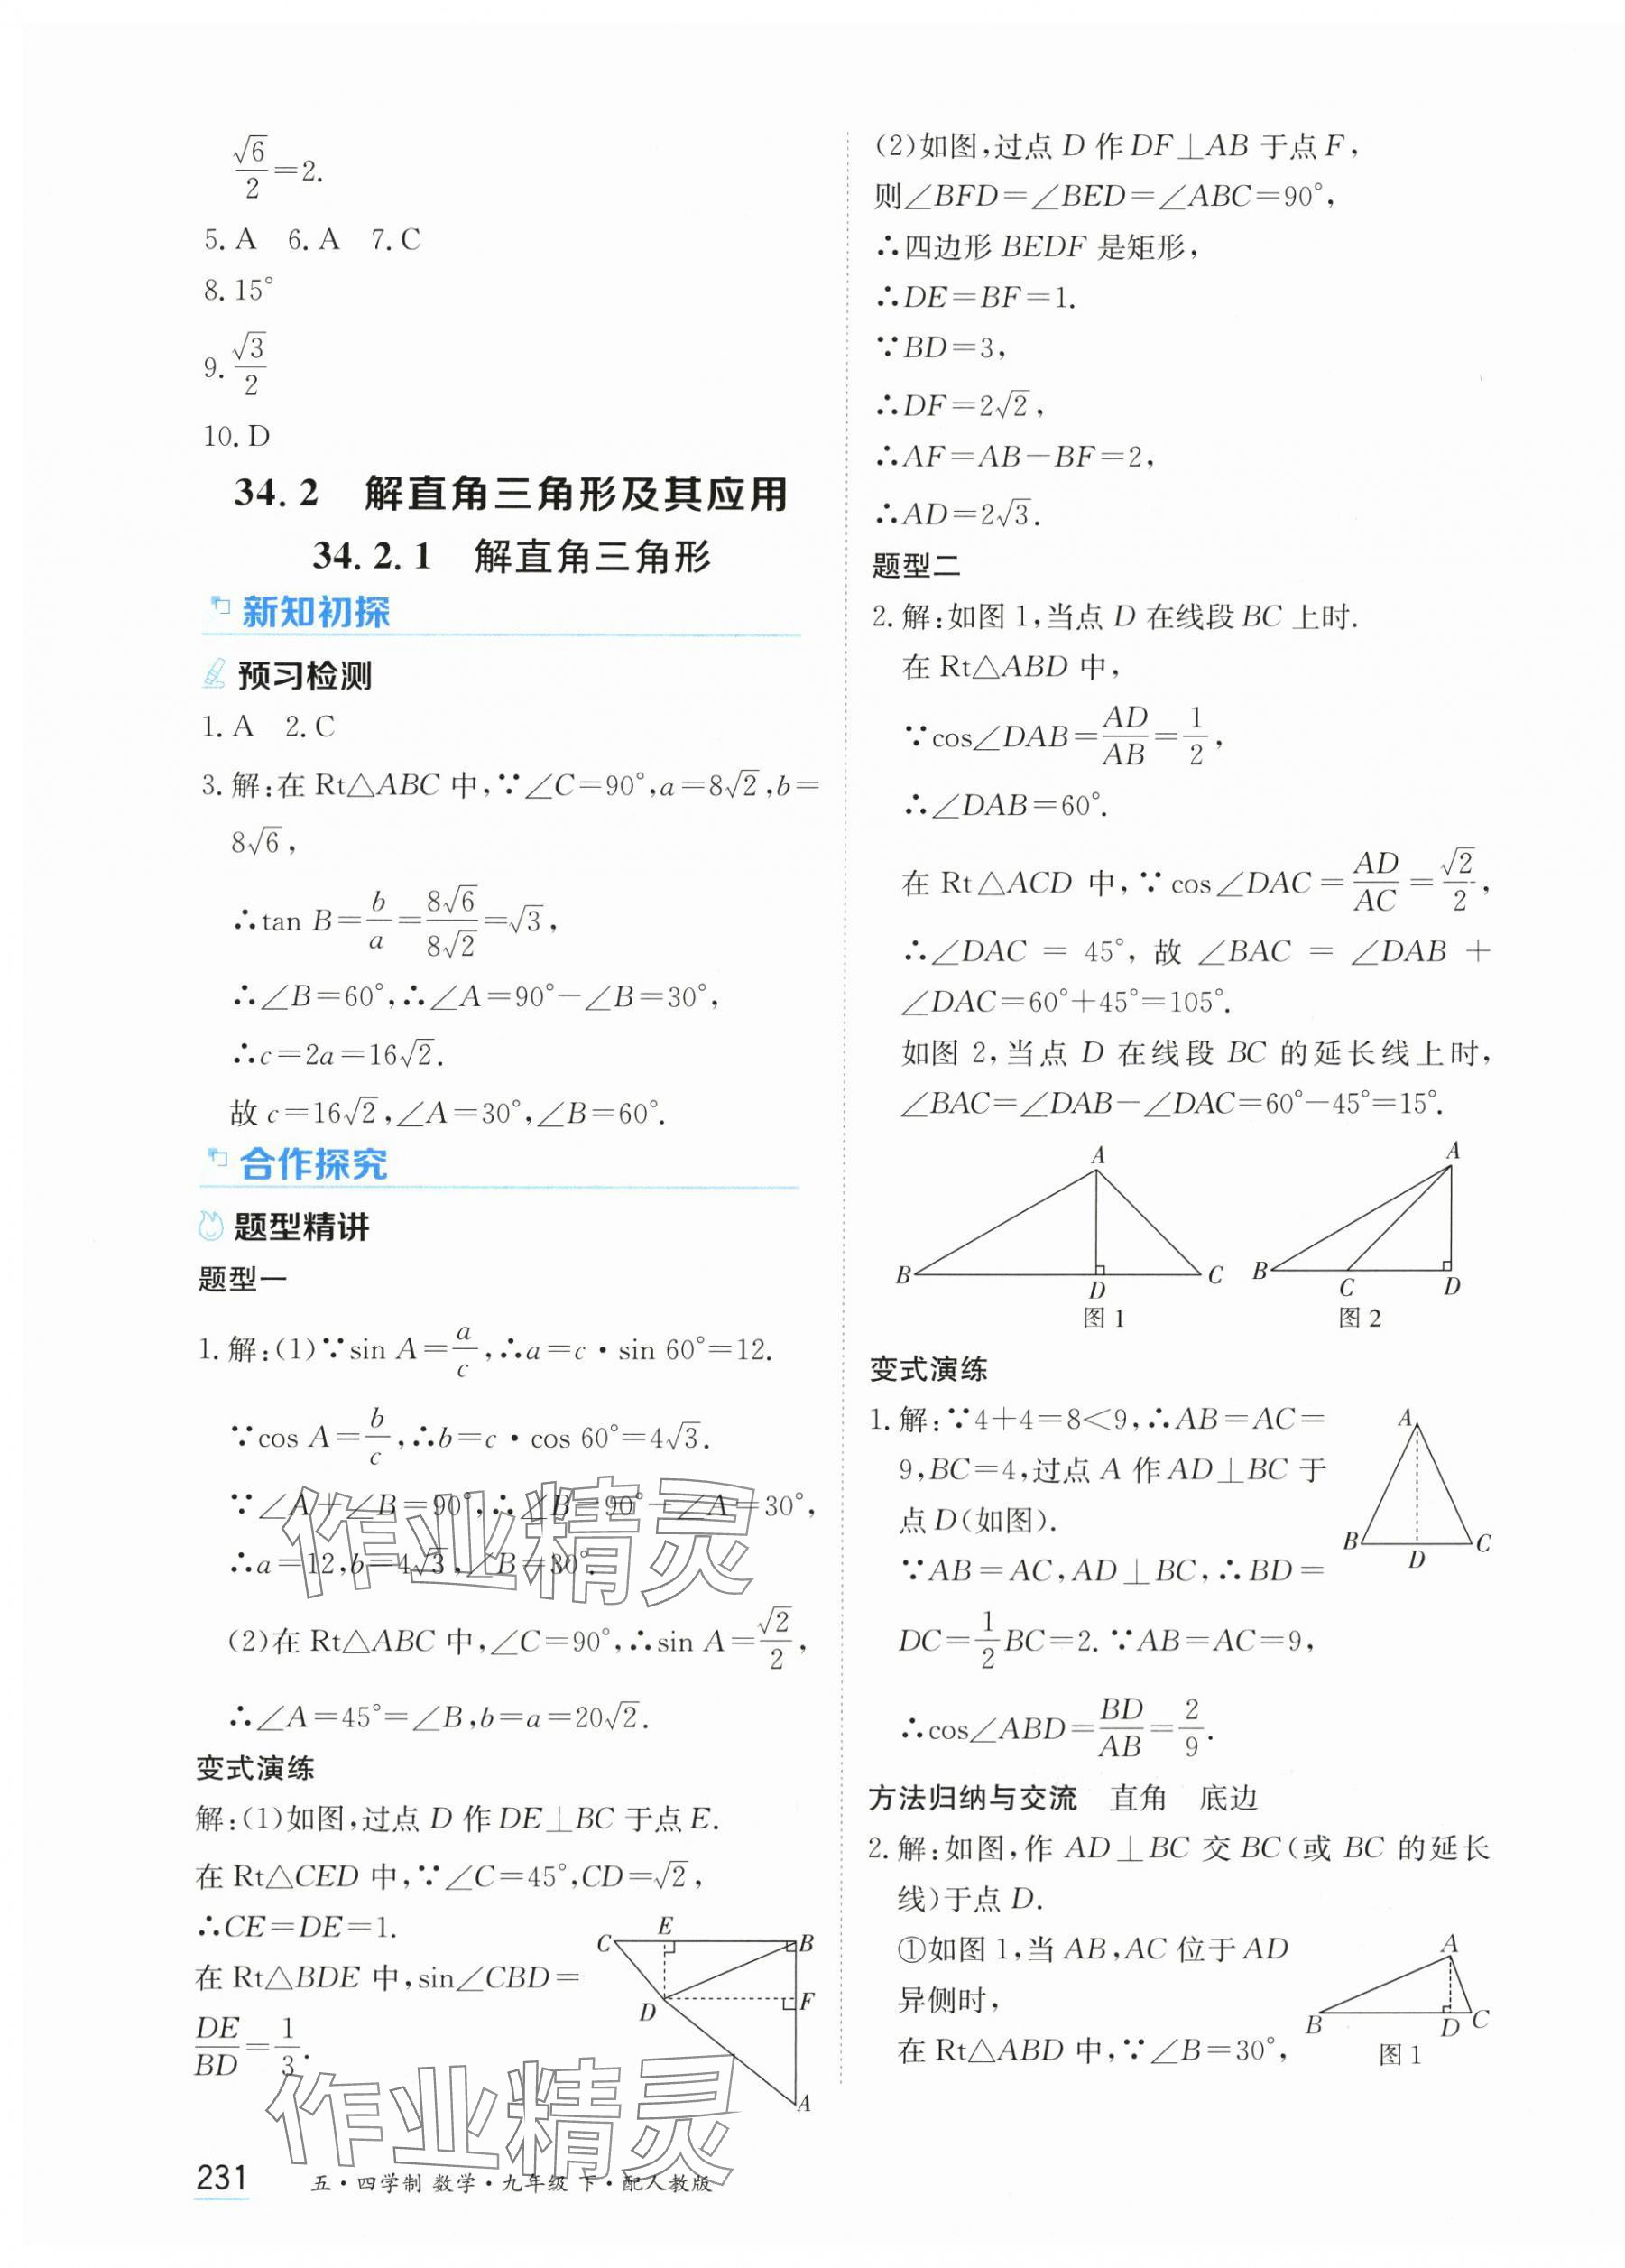 √6/2=2.
5. A 6. A 7. C
8. 15°
9. √3/2
10. D
34. 2 解直角三角形及其应用
34. 2. 1 解直角三角形
新知初探
预习检测
1. A 2. C
3. 解:在 Rt△ABC 中,∵∠C=90°,a=8√2,b=
8√6,
∴tan B=b/a=8√6/8√2=√3,
∴∠B=60°,∴∠A=90°-∠B=30°,
∴c=2a=16√2.
故 c=16√2,∠A=30°,∠B=60°.
合作探究
题型精讲
题型一
1. 解:(1)∵sin A=a/c,∴a=c·sin 60°=12.
∵cos A=b/c,∴b=c·cos 60°=4√3.
∵∠A+∠B=90°,∴∠B=90°-∠A=30°,
∴a=12,b=4√3,∠B=30°.
(2)在 Rt△ABC 中,∠C=90°,∴sin A=√2/2,
∴∠A=45°=∠B,b=a=20√2.
变式演练
解:(1)如图,过点 D 作 DE⊥BC 于点 E.
在 Rt△CED 中,∵∠C=45°,CD=√2,
∴CE=DE=1.
在 Rt△BDE 中,sin∠CBD=
DE/BD=1/3.
C E B
D F
A
(2)如图,过点 D 作 DF⊥AB 于点 F,
则∠BFD=∠BED=∠ABC=90°,
∴四边形 BEDF 是矩形,
∴DE=BF=1.
∵BD=3,
∴DF=2√2,
∴AF=AB-BF=2,
∴AD=2√3.
题型二
2. 解:如图 1,当点 D 在线段 BC 上时.
在 Rt△ABD 中,
∵cos∠DAB=AD/AB=1/2,
∴∠DAB=60°.
在 Rt△ACD 中,∵cos∠DAC=AD/AC=√2/2,
∴∠DAC = 45°, 故 ∠BAC = ∠DAB +
∠DAC=60°+45°=105°.
如图 2,当点 D 在线段 BC 的延长线上时,
∠BAC=∠DAB-∠DAC=60°-45°=15°.
A A
B D C B C D
图 1 图 2
变式演练
1. 解:∵4+4=8<9,∴AB=AC=
9,BC=4,过点 A 作 AD⊥BC 于
点 D(如图).
∵AB=AC,AD⊥BC,∴BD=
DC=1/2BC=2. ∵AB=AC=9,
∴cos∠ABD=BD/AB=2/9.
A
B D C
方法归纳与交流 直角 底边
2. 解:如图,作 AD⊥BC 交 BC(或 BC 的延长
线)于点 D.
①如图 1,当 AB,AC 位于 AD
异侧时,
在 Rt△ABD 中,∵∠B=30°,
A
B D C
图 1
作业精灵
作业精灵
231 五·四学制 数学·九年级 下·配人教版